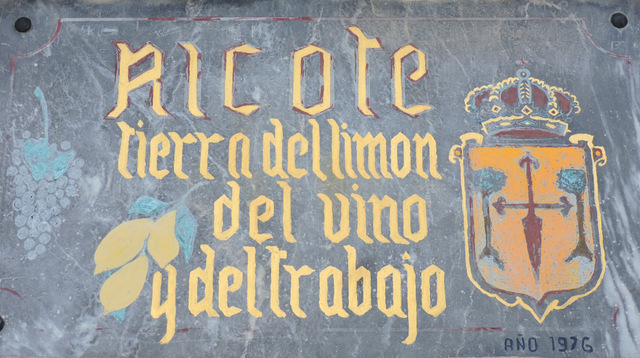 RICOTE
tierra del limon
del vino
y del trabajo
AÑO 1976